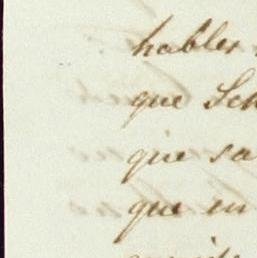 habler
que Sch
que sa
que en